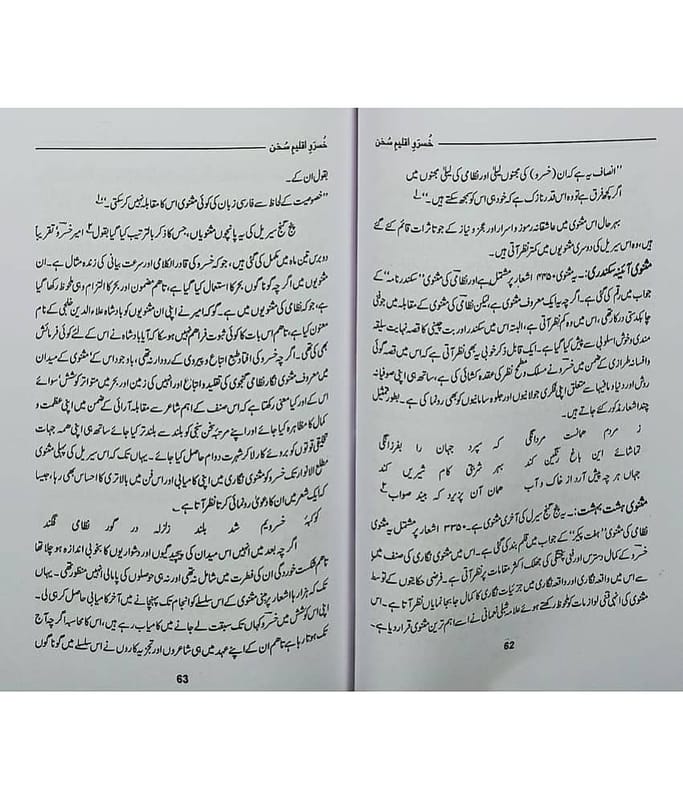 خُسروِ اقلیمِ سُخن
"انصاف یہ ہے کہ ان (خسرو) کی مجنوں لیلیٰ اور نظامی کی لیلیٰ مجنوں میں
اگر کچھ فرق ہے تو وہ اس قدر نازک ہے کہ خود ہی اس کو سمجھ سکتے ہیں۔"
بہر حال اس مثنوی میں عاشقانہ رموز و اسرار اور عجز و نیاز کے جو تاثرات قائم کئے گئے
ہیں، وہ اس سیریل کی دوسری مثنویوں میں کمتر نظر آتی ہیں۔
مثنوی آئینۂ سکندری:۔ یہ مثنوی ۴۴۵۰ اشعار پر مشتمل ہے اور نظامی کی مثنوی "سکندر نامہ" کے
جواب میں رقم کی گئی ہے۔ اگر چہ یہ ایک معروف مثنوی ہے، لیکن نظامی کی مثنوی کے مقابلہ میں جو فنی
چابکدستی درکار تھی، اس میں وہ کم نظر آتی ہے، البتہ اس میں سکندر اور بت چینی کا قصہ نہایت سلیقہ
مندی و خوش اسلوبی سے پیش کیا گیا ہے۔ ایک قابل ذکر خوبی یہ بھی نظر آتی ہے کہ اس میں قصہ گوئی
و افسانہ طرازی کے ضمن میں خسرو نے مسلک و مطمح نظر کی عقدہ کشائی کی ہے، ساتھ ہی اپنی صوفیانہ
روش اور دنیا و مافیہا سے متعلق اپنی فکری جولانیوں اور جلوہ سامانیوں کو بھی رونما کی ہے۔ بطور تمثیل
چند اشعار مذکور کئے جاتے ہیں۔
ز مردم ہمانست مردانگی کہ سپرد جہاں را بفرزانگی
تماشائے ایں باغ رنگین کند بہر شربتی کام شیریں کند
جہاں ہر چہ پیش آرد از خاک و آب ہماں آں پزیرد کہ بیند صواب
مثنوی ہشت بہشت:۔ یہ پنج گنج سیریل کی آخری مثنوی ہے۔ ۳۳۵۰ اشعار پر مشتمل یہ مثنوی
نظامی کی مثنوی "ہفت پیکر" کے جواب میں قلم بند کی گئی ہے۔ اس میں مثنوی نگاری کی صنف میں
خسرو کے کمال دسترس اور فنی پختگی کی جھلک اکثر مقامات پر نظر آتی ہے۔ فرضی حکایتوں کے توسط
سے اس میں واقعہ نگاری اور واقعہ نگاری میں جزئیات نگاری کا کمال جا بجا نمایاں نظر آتا ہے۔ اس
مثنوی کی انہی فنی لوازمات کو ملحوظ رکھتے ہوئے علامہ شبلی نعمانی نے اسے اہم ترین مثنوی قرار دیا ہے۔
62
خُسروِ اقلیمِ سُخن
بقول ان کے۔
"خصوصیت کے لحاظ سے فارسی زبان کی کوئی مثنوی اس کا مقابلہ نہیں کر سکتی۔"
پنج گنج سیریل کی یہ پانچوں مثنویاں، جس کا ذکر بالترتیب کیا گیا بقول امیر خسرو تقریباً
دو یا تین ماہ میں مکمل کی گئی ہیں، جو کہ خسرو کی قادر الکلامی اور سرعت بیانی کی زندہ مثال ہے۔ ان
مثنویوں میں اگر چہ گوناگوں بحور کا استعمال کیا گیا ہے، تاہم مضمون اور بحر کا التزام وہی ملحوظ رکھا گیا
ہے، جو کہ نظامی کی مثنویوں میں ہے۔ گو کہ امیر نے اپنی ان مثنویوں کو بادشاہ علاء الدین خلجی کے نام
معنون کیا ہے، تاہم اس بات کا کوئی ثبوت فراہم نہیں ہو سکا کہ آیا بادشاہ نے اس کے لئے کوئی فرمائش
بھی کی تھی۔ اگر چہ خسرو کی افتاد طبع اتباع و پیروی کے روادار نہ تھی، باوجود اس کے مثنوی کے میدان
میں معروف مثنوی نگار نظامی گنجوی کی تقلید و اتباع اور انہیں کی زمین اور بحر میں متواتر کوشش سوائے
اس کے اور کیا معنی رکھتا ہے کہ اس صنف کے اہم شاعر سے مقابلہ آرائی کے ضمن میں اپنی عظمت و
کمال کا مظاہرہ کیا جائے اور اپنے مرتبہ سخن سنجی کو بلند سے بلند تر کیا جائے ساتھ ہی اپنی ہمہ جہات
تخلیقی قوتوں کو بروئے کار لا کر شہرت دوام حاصل کیا جائے۔ یہاں تک کہ اس سیریل کی پہلی مثنوی
مطلع الانوار تک خسرو کو مثنوی نگاری میں اپنی کامیابی اور اس فن میں بالاتری کا احساس بھی رہا، جیسا
کہ ایک شعر میں اس کا دعویٰ رونمائی کرتا نظر آتا ہے۔
کوکبۂ خسرویم شد بلند زلزلہ در گور نظامی فگند
اگر چہ بعد میں انہیں اس میدان کی پیچیدگیوں اور دشواریوں کا بخوبی اندازہ ہو چلا تھا
تاہم شکست خوردگی ان کی فطرت میں شامل نہ تھی اور نہ ہی حوصلوں کی پامالی انہیں منظور تھی۔ یہاں
تک کہ ہزارہا اشعار پر مبنی مثنوی کے اس سلسلے کو انجام تک پہنچانے میں آخر کامیابی حاصل کر ہی لی۔
اپنی اس کوشش میں خسرو کہاں تک سبقت لے جانے میں کامیاب رہے ہیں، اس کا محاسبہ اگر چہ آج
تک ہوتا رہا ہے تاہم ان کے اپنے عہد میں ہی شاعروں اور تجزیہ کاروں نے اس سلسلے میں گوناگوں
63